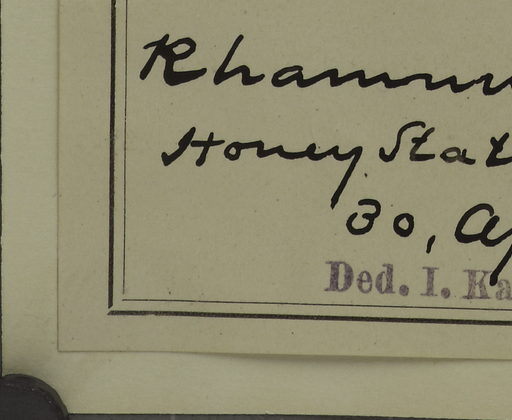 Rhamnu
Honey Stat
30, Ap
Ded. I. Ka